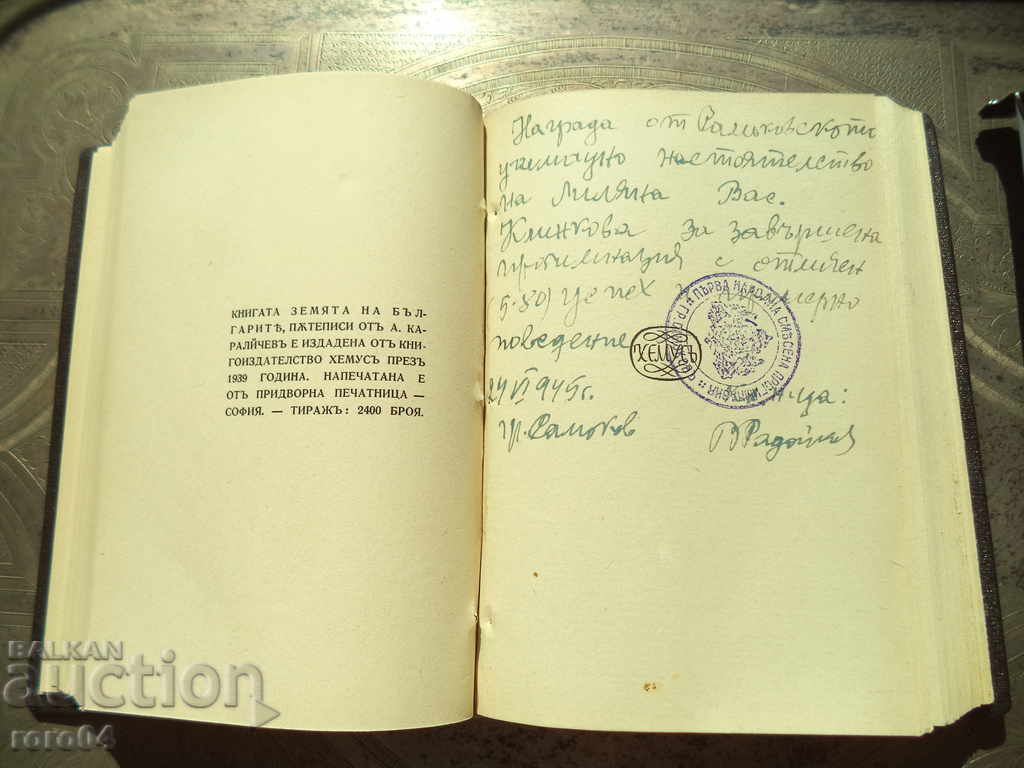 КНИГАТА ЗЕМЯТА НА БЪЛ-
ГАРИТѢ, ПѪТЕПИСИ ОТЪ А. КА-
РАЛИЙЧЕВЪ Е ИЗДАДЕНА ОТЪ КНИ-
ГОИЗДАТЕЛСТВО ХЕМУСЪ ПРЕЗЪ
1939 ГОДИНА. НАПЕЧАТАНА Е
ОТЪ ПРИДВОРНА ПЕЧАТНИЦА —
СОФИЯ. — ТИРАЖЪ: 2400 БРОЯ.
Награда от Самоковското
училищно настоятелство
на Лиляна Вас.
Клинкова за завършена
прогимназия с отличен
(5·80) успех и примерно
поведение
ХЕМУСЪ
ПЪРВА НАРОДНА СМѢСЕНА ПРОГИМНАЗИЯ
24 VI 1945 г.
гр. Самоков
BALKAN
auction
roro04